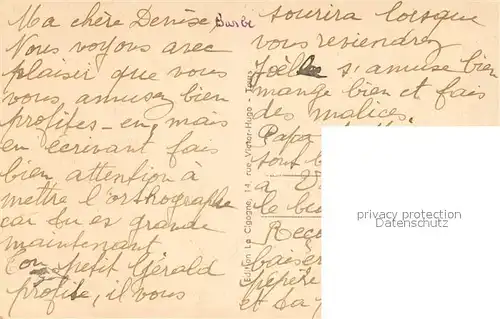 Ma chère Denise, Barbe
Nous voyons avec
plaisir que vous
vous amusez bien
profites-en, mais
en ecrivant fais
bien attention à
mettre l'orthographe
car tu es grande
maintenant
Ton petit Gérald
profite, il vous
Edition La Cigogne, 14, rue Victor-Hugo - Tours
sourira lorsque
vous reviendrez
Joëlle s'amuse bien
mange bien et fais
des malices.
Papa
sont b
a V
le bu
Rece
baiser
pépère
et ta
privacy protection
Datenschutz